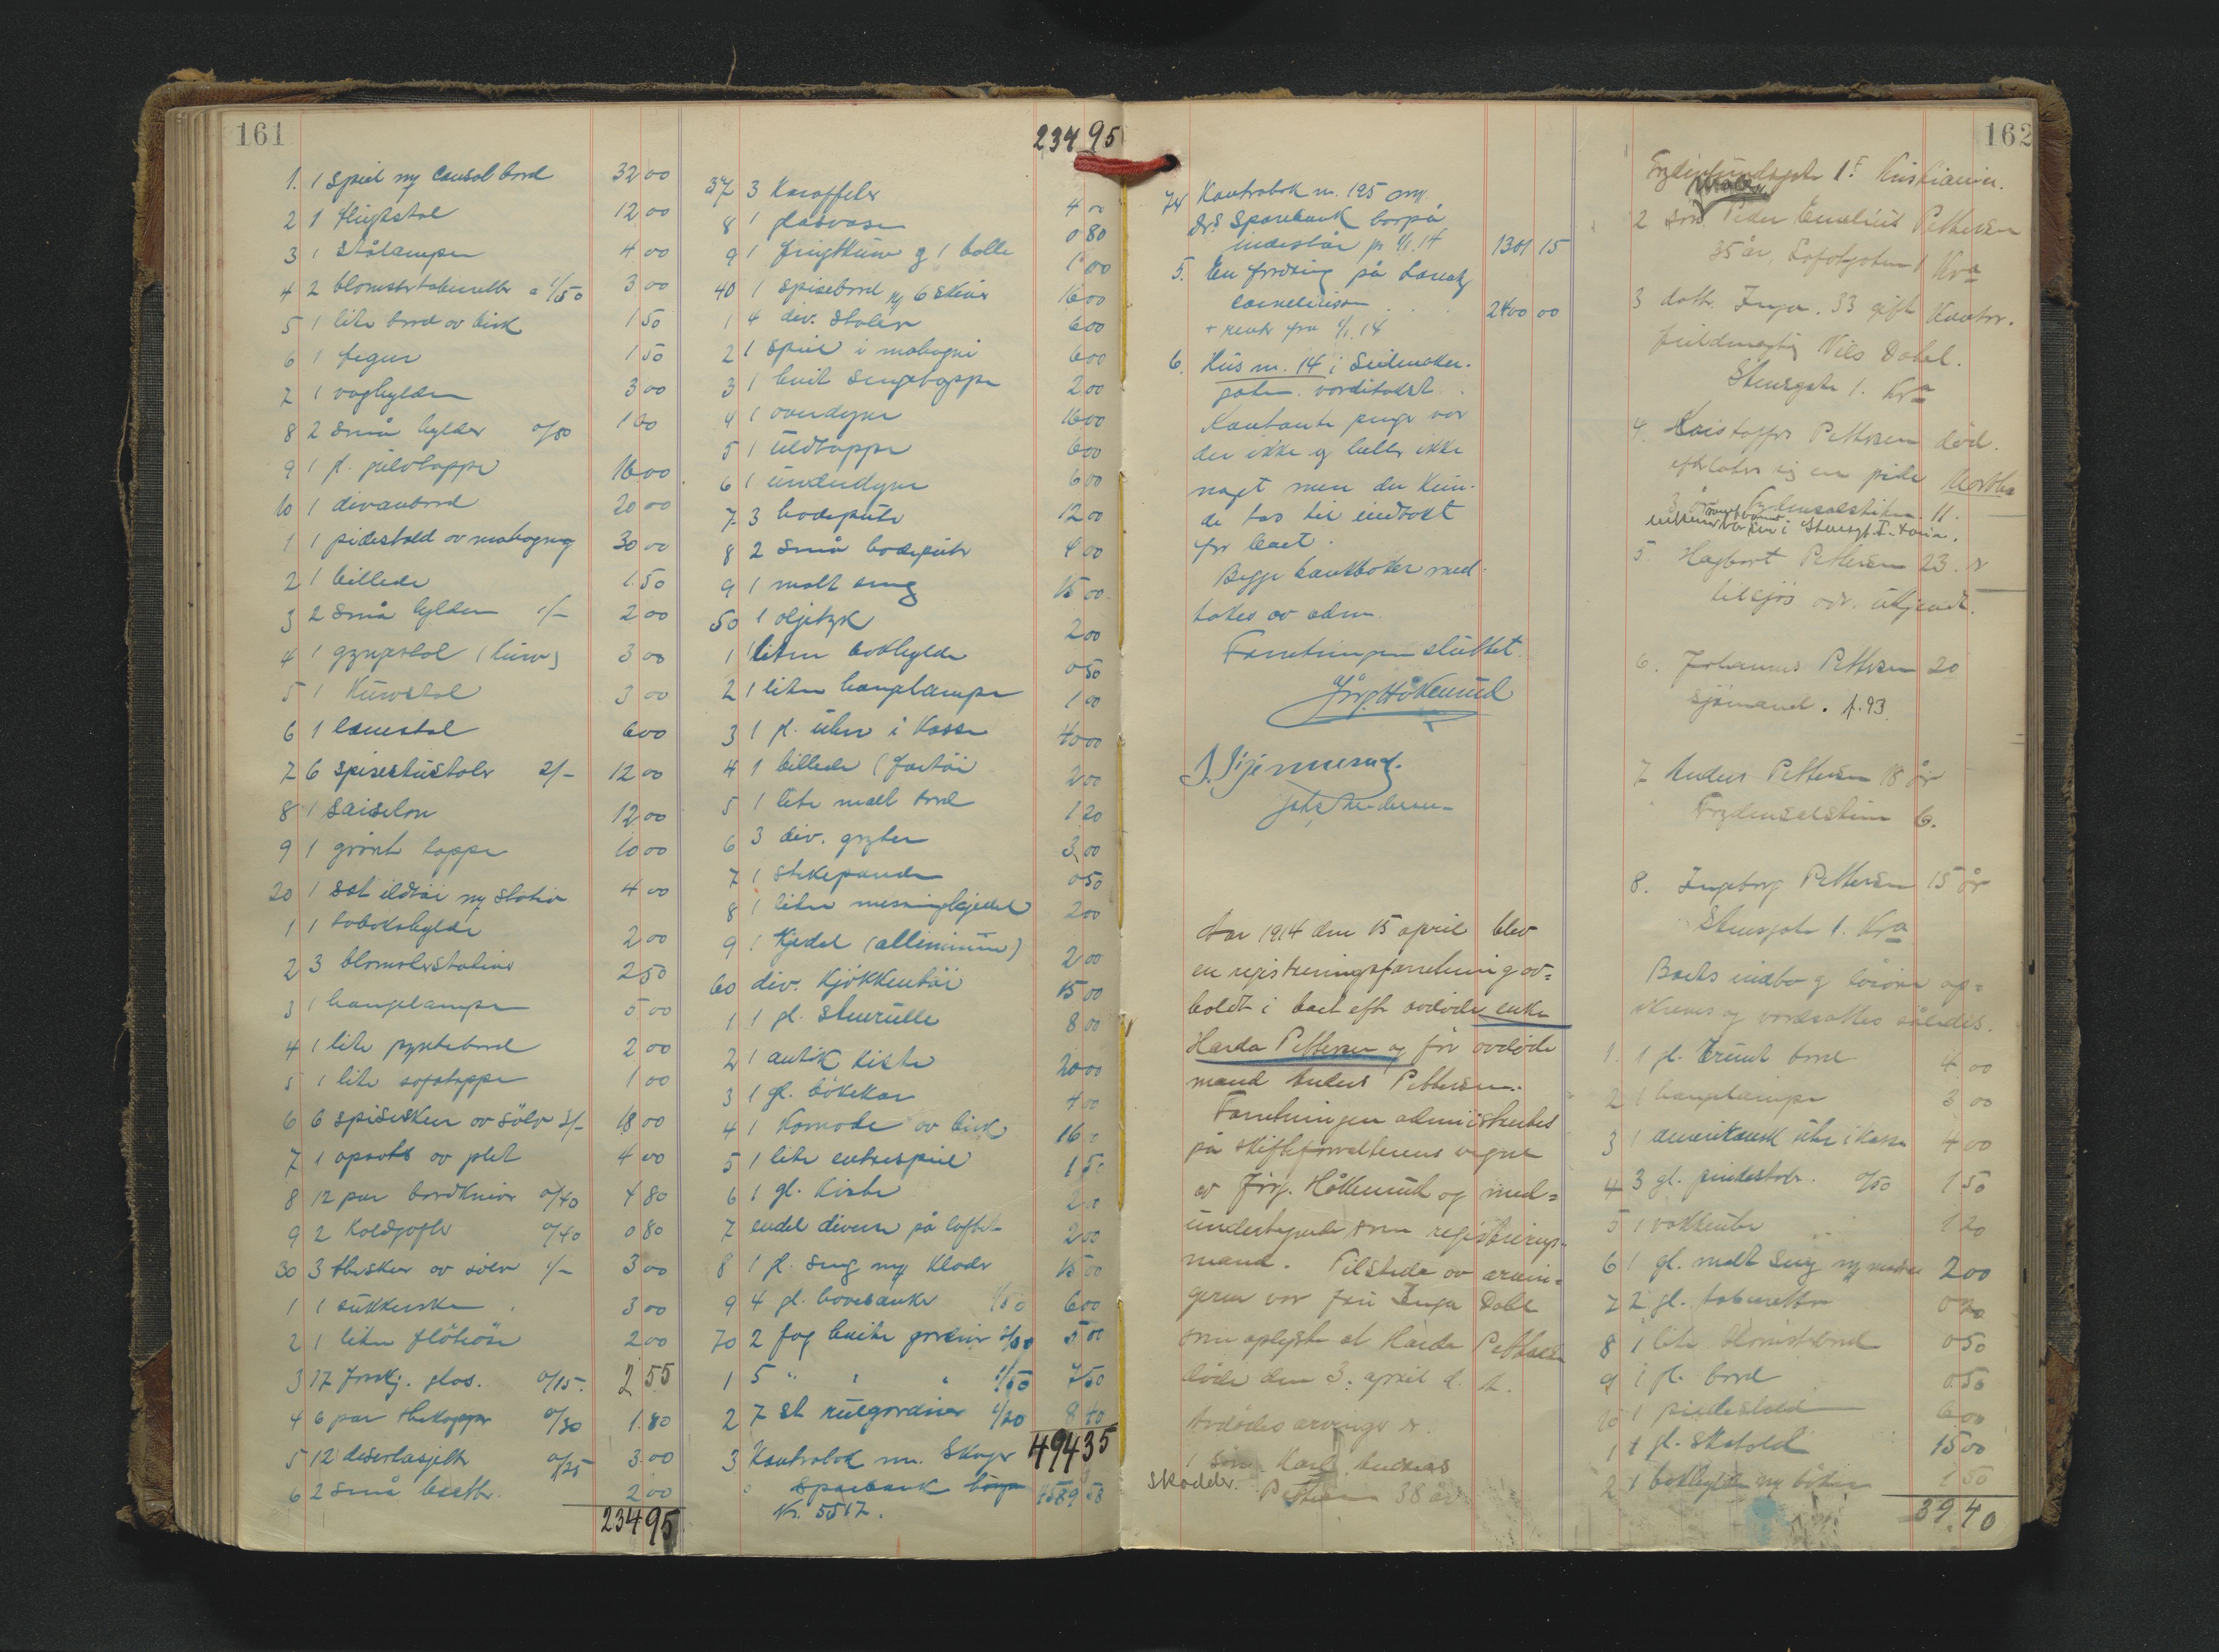 161
1. 1 speil m/ consol bord 32 00
2 1 flugtstol 12 00
3 1 stålampe 4 00
4 2 blomstertaburetter a 1/50 3 00
5 1 lite bord av birk 1 50
6 1 figur 1 50
7 1 vaghylde 3 00
8 2 små hylder 0/80 1 60
9 1 gl. gulvtæppe 16 00
10 1 divanbord 20 00
1 1 pidestald av mahogny 30 00
2 1 billede 1 50
3 2 små hylder 1/- 2 00
4 1 gyngestol (kurv) 3 00
5 1 kurvstol 3 00
6 1 lænestol 6 00
7 6 spisestustoler 2/- 12 00
8 1 saiselon 12 00
9 1 grönt tæppe 10 00
20 1 sæt ildtöi m/ stativ 4 00
1 1 tobakshylde 2 00
2 3 blomsterstativer 2 50
3 1 hangelampe 5 00
4 1 lite pyntebord 2 00
5 1 lite sofatæppe 1 00
6 6 spiseskeer av sölv 3/- 18 00
7 1 opsats av plet 4 00
8 12 par bordkniver 0/40 4 80
9 2 koldgafler 0/40 0 80
30 3 theskeer av sölv 1/- 3 00
1 1 sukkerske 3 00
2 1 liten flöteöse 2 00
3 17 forskj. glas. 0/15. 2 55
4 6 par thekopper 0/30 1.80
5 12 desertasjetter 0/25 3.00
6 2 små brætter. 2 00
234 95
234 95
37 3 Karaffeler 4 00
8 1 glasvase 0 80
9 1 frugtkurv og 1 bolle 1 00
40 1 spisebord m/ 6 skiver 16 00
1 4 div. stoler 6 00
2 1 speil i mahogni 6 00
3 1 hvit sengetæppe 2 00
4 1 overdyne 16 00
5 1 uldtæppe 6 00
6 1 underdyne 6 00
7 3 hodeputer 12 00
8 2 små hodeputer 4 00
9 1 malt seng 15 00
50 1 oljetryk 2 00
1 1 liten bokhylde 0 50
2 1 liten hangelampe 1 00
3 1 gl. uhr i kasse 40 00
4 1 billede (fartöi 2 00
5 1 lite malt bord 1 20
6 3 div. gryter 3 00
7 1 stekepande 0 50
8 1 liten messingkjedel 2 00
9 1 Kjedel (alluminium) 2 00
60 div. Kjökkentöi 15 00
1 1 gl. stuerulle 8 00
2 1 antik kiste 20 00
3 1 gl. bökekar 4 00
4 1 Komode av birk 16
5 1 lite entrespeil 1 50
6 1 gl. kiste 2 00
7 endel diverse på loftet 2 00
8 1 gl. seng m/ klæder 15 00
9 4 gl. 1/50 6 00
70 2 fag hvite gardiner 2/50 5 00
1 5 " " " 1/50 7 50
2 7 st. rulgardiner 1/20 8 40
494 35
3 Kontrabok m. Skoger
sparebank
Nr. 5517.
162
74 Kontrabok n. 195 m/
Dr.s Sparebank hvorpå
indestår pr 1/1.14 1301 15
5. En fordring på Lauritz
Corneliussen . . . . 2400 00
+ renter fra 1/1.14
6. Hus nr. 14 i Seilmaker-
gaten. værditakst.
Kontante penge var
der ikke og heller ikke
noget men der kun-
de tas til indtekt
for boet.
Begge bankböker med-
tokes av adm.
Forretningen sluttet.
Jörg Håkenrud

Aar 1914 den 15 april blev
en registreringsforretning av=
holdt i boet efter avdöde enke
Harda Pettersen og för avdöde
mand Anders Pettersen.
Forretningen administrertes
på skifteforvalterens vegne
av Jörg. Håkenrud og med=
undertegnede som registrerings-
mand. Tilstede av arvin=
gerne var fru Inga Dahl
som oplyste at Harda Pettersen
döde den 3. april d. å.
Avdödes arvinger er.
1 Sön Karl Andreas
skrædder. Pettersen 38 år
Kristiania.
2 sön Peder Emelius Pettersen
35 år, Lofotgaten 1 Kra
3 datter Inga. 33 gift Kontor.
fuldmegtig Nils Dahl.
Stensgate 1. Kra
4. Kristoffer Pettersen död.
efterlater sig en pike Martha
11.
5. Hagbart Pettersen 23. er
tilsjös adr. ukjendt.
6. Johannes Pettersen 20
sjömand. f. 93.
7 Anders Pettersen 18 år
6.
8. Ingeborg Pettersen 15 år
Stensgate 1. Kra
Boets indbo og lösöre op=
skreves og værdsattes således.
1. 1 gl. trunt bord 4 00
2 1 hangelampe 3 00
3 1 amerikansk uhr i kasse 4 00
4 3 gl. pindestoler. 0/50 1 50
5 1 vækkeuhr 1 20
6 1 gl. malt seng m/ 2 00
7 2 gl. taburetter
8 1 lite blomsterbord 0 50
9 1 gl. bord 0.50
10 1 pidestald 6 00
1 1 gl. skatold 15 00
2 1 bokhylde m/ böker 1 50
39.40